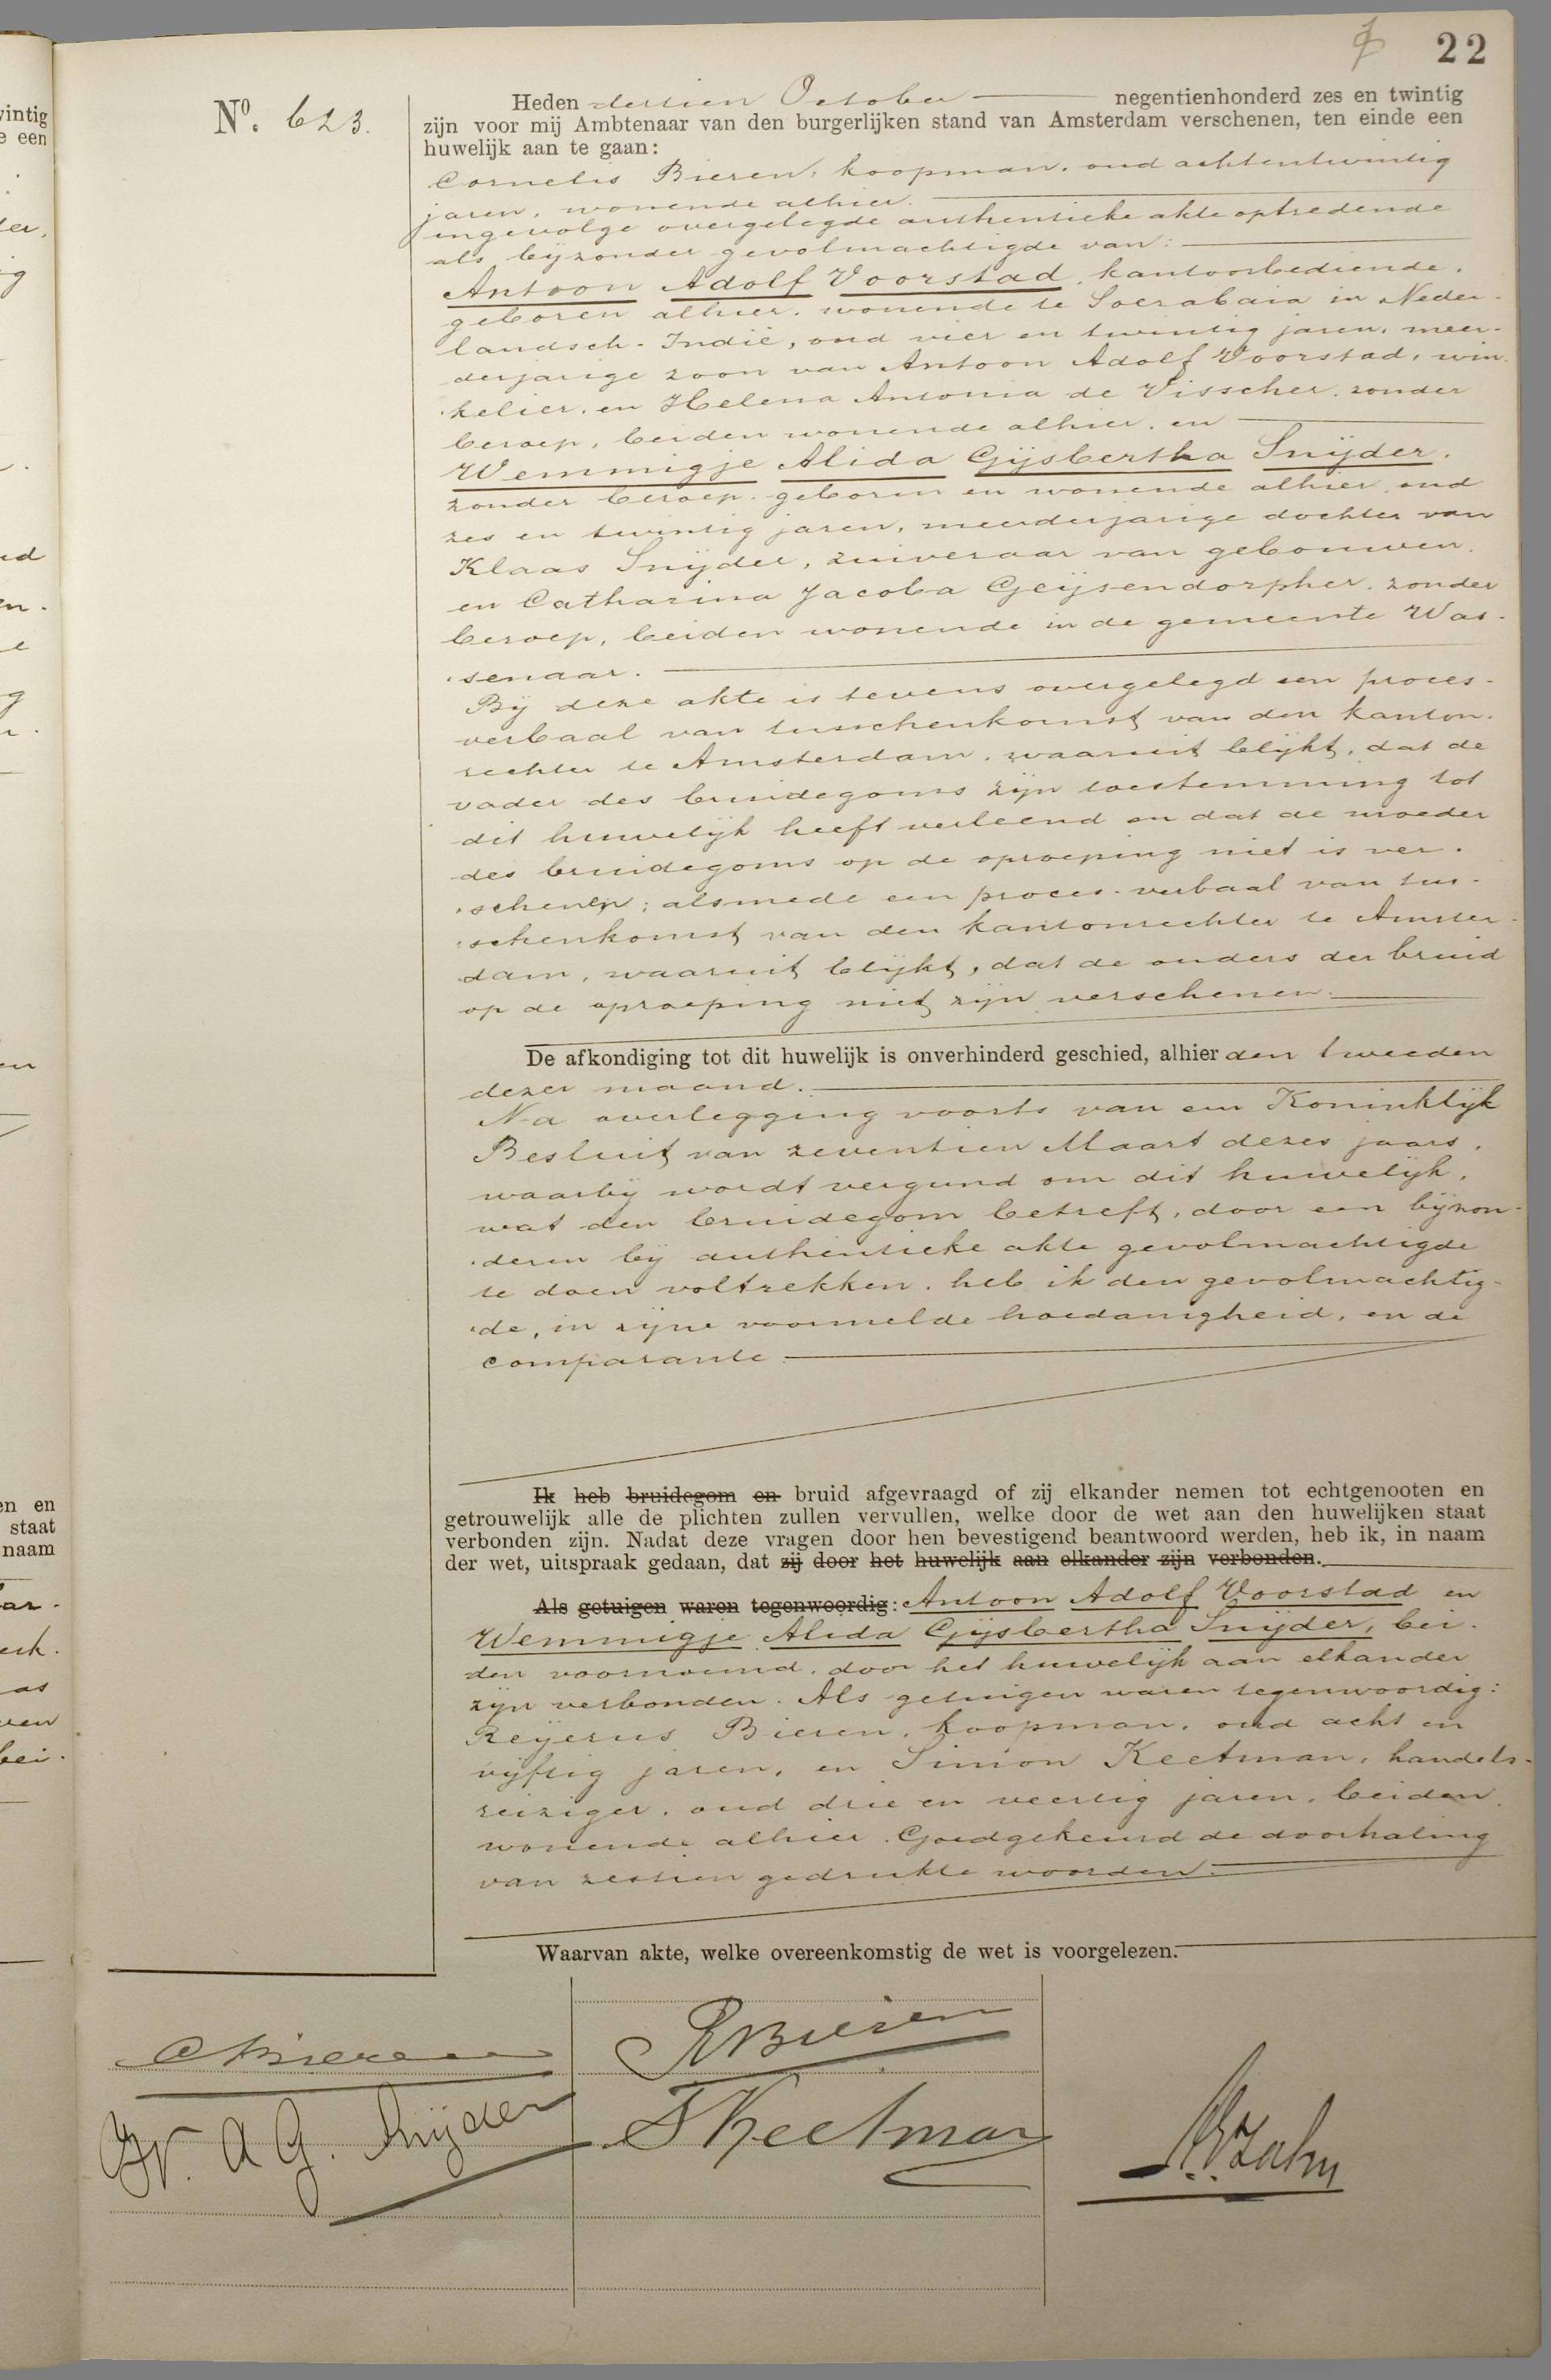 22
Nº. 623.
Heden dertien October negentienhonderd zes en twintig
zijn voor mij Ambtenaar van den burgerlijken stand van Amsterdam verschenen, ten einde een
huwelijk aan te gaan:
Cornelis Bieren, koopman, oud achtentwintig
jaren, wonende alhier.
ingevolge overgelegde authentieke akte optredende
als bijzonder gevolmachtigde van:
Antoon Adolf Voorstad, kantoorbediende,
geboren alhier, wonende te Soerabaia in Neder-
landsch-Indië, oud vier en twintig jaren, meer-
derjarige zoon van Antoon Adolf Voorstad, win-
kelier, en Helena Antonia de Visscher, zonder
beroep, beiden wonende alhier, en
Wemmigje Alida Gijsbertha Snijder,
zonder beroep, geboren en wonende alhier, oud
zes en twintig jaren, meerderjarige dochter van
Klaas Snijder, zuiveraar van gebouwen,
en Catharina Jacoba Geijsendorpher, zonder
beroep, beiden wonende in de gemeente Was-
senaar.
Bij deze akte is tevens overgelegd een proces-
verbaal van tusschenkomst van den kanton-
rechter te Amsterdam, waaruit blijkt, dat de
vader des bruidegoms zijn toestemming tot
dit huwelijk heeft verleend en dat de moeder
des bruidegoms op de oproeping niet is ver-
schenen; alsmede een proces-verbaal van tus-
schenkomst van den kantonrechter te Amster-
dam, waaruit blijkt, dat de ouders der bruid
op de oproeping niet zijn verschenen.
De afkondiging tot dit huwelijk is onverhinderd geschied, alhier den tweeden
dezer maand.
Na overlegging voorts van een Koninklijk
Besluit van zeventien Maart dezes jaars,
waarbij wordt vergund om dit huwelijk,
wat den bruidegom betreft, door een bijzon-
deren bij authentieke akte gevolmachtigde
te doen voltrekken, heb ik den gevolmachtig-
de, in zijne voormelde hoedanigheid, en de
comparante
Ik heb bruidegom en bruid afgevraagd of zij elkander nemen tot echtgenooten en
getrouwelijk alle de plichten zullen vervullen, welke door de wet aan den huwelijken staat
verbonden zijn. Nadat deze vragen door hen bevestigend beantwoord werden, heb ik, in naam
der wet, uitspraak gedaan, dat zij door het huwelijk aan elkander zijn verbonden.
Als getuigen waren tegenwoordig: Antoon Adolf Voorstad en
Wemmigje Alida Gijsbertha Snijder, bei-
den voornoemd, door het huwelijk aan elkander
zijn verbonden. Als getuigen waren tegenwoordig:
Reijerus Bieren, koopman, oud acht en
vijftig jaren, en Simon Keetman, handels-
reiziger, oud drie en veertig jaren, beiden
wonende alhier. Goedgekeurd de doorhaling
van zestien gedrukte woorden.
Waarvan akte, welke overeenkomstig de wet is voorgelezen.
C Bieren
R Bieren
W. A G. Snijder
S Keetman